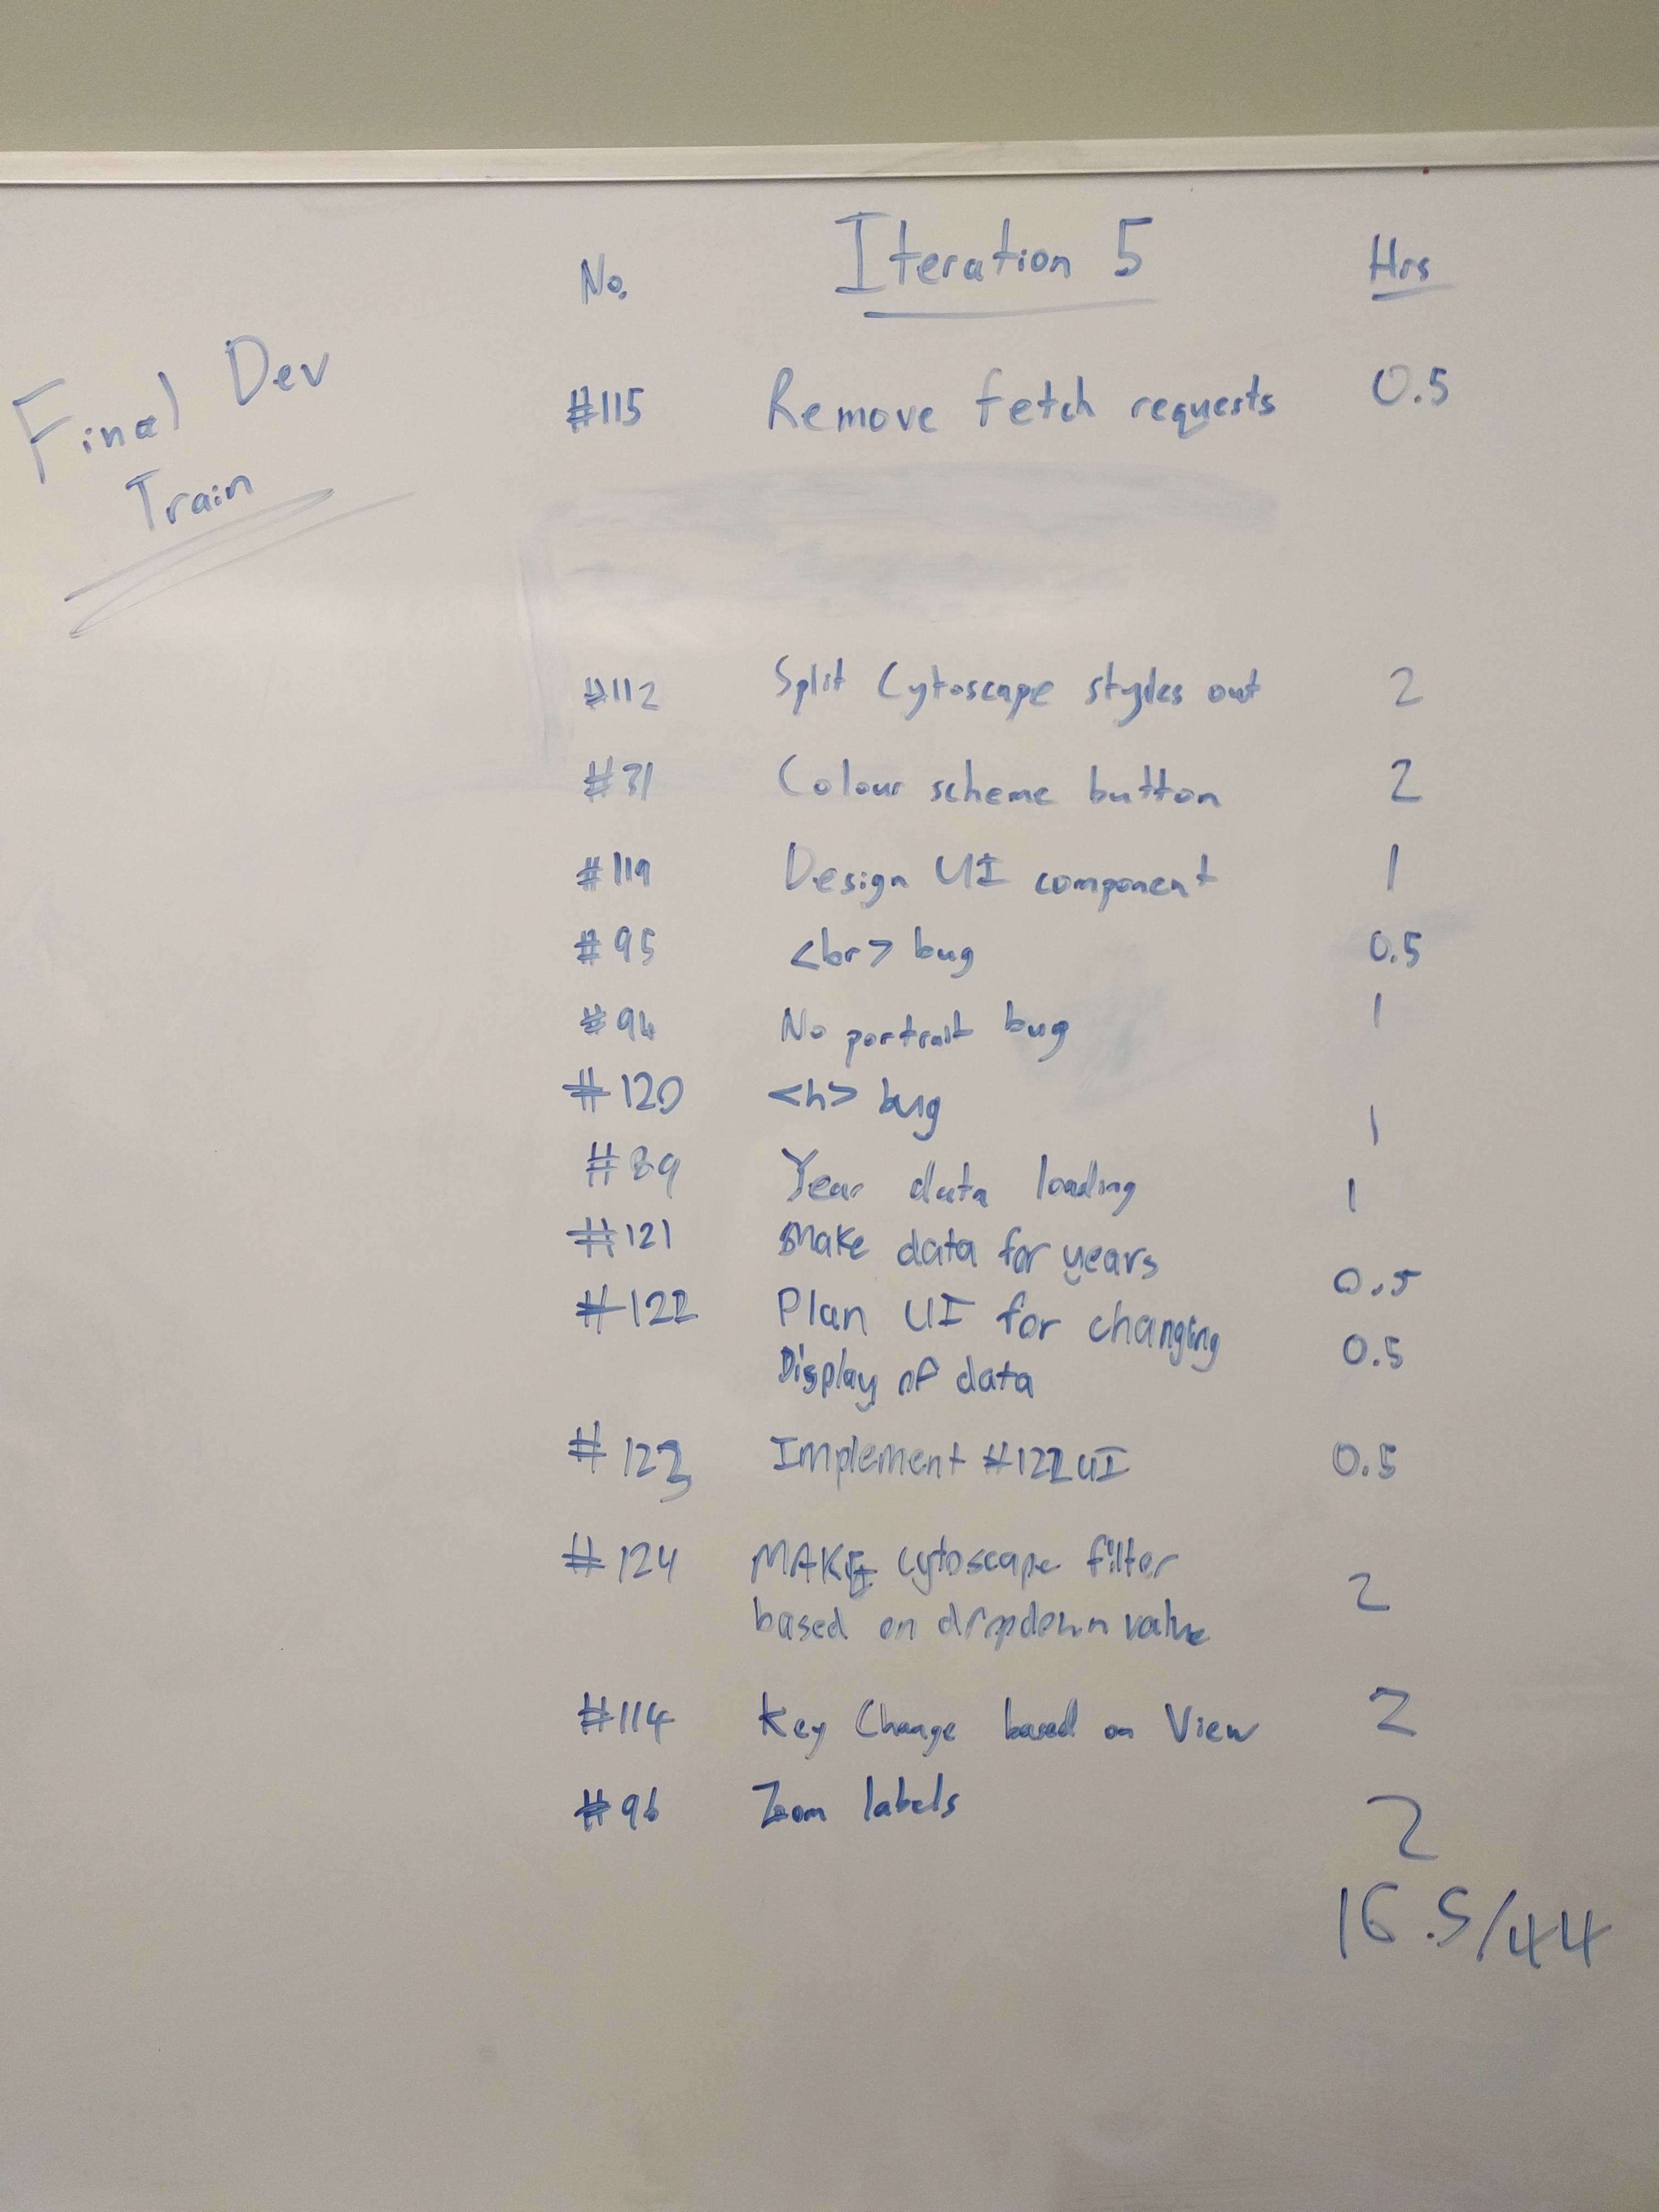 No. Iteration 5 Hrs
Final Dev
Train
#115 Remove fetch requests 0.5
#112 Split Cytoscape styles out 2
#31 Colour scheme button 2
#119 Design UI component 1
#95 <br> bug 0.5
#94 No portrait bug 1
#120 <h> bug 1
#89 Year data loading 1
#121 Make data for years 0.5
#122 Plan UI for changing 0.5
Display of data
#123 Implement #122 UI 0.5
#124 MAKE cytoscape filter
based on dropdown value 2
#114 Key Change based on View 2
#96 Zoom labels 2
16.5/44